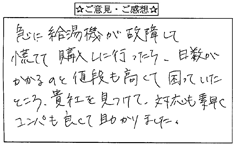 ☆ご意見・ご感想☆
急に給湯機が故障して
慌てて購入しに行ったら、日数が
かかるのと値段も高くて困っていた
ところ、貴社を見つけて、対応も素早く
コンパも良くて助かりました。